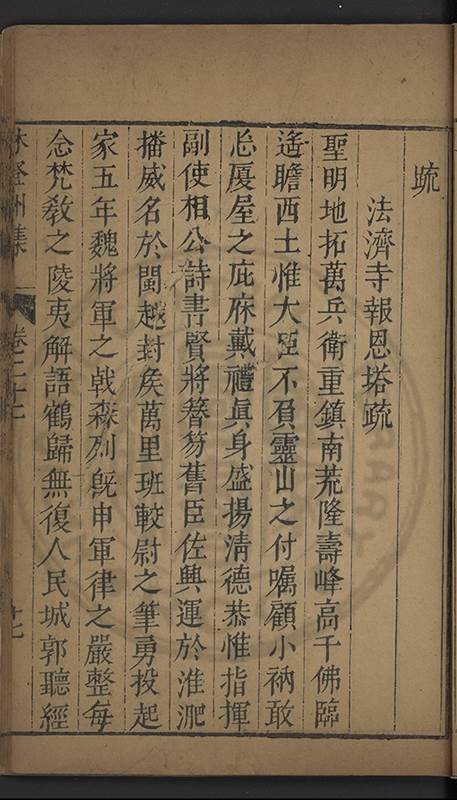 疏
法濟寺報恩塔疏
聖明地拓萬兵衛重鎮南荒隆壽峰高千佛臨
遥瞻西土惟大臣不負靈山之付囑顧小衲敢
忘廈屋之庇庥戴禮眞身盛揚清德恭惟指揮
副使相公詩書賢將簪笏舊臣佐興運於淮淝
播威名於閩越封矦萬里班較尉之筆勇投起
家五年魏將軍之戟森列旣申軍律之嚴整每
念梵敎之陵夷解語鶴歸無復人民城郭聽經
林登州集
卷二十二